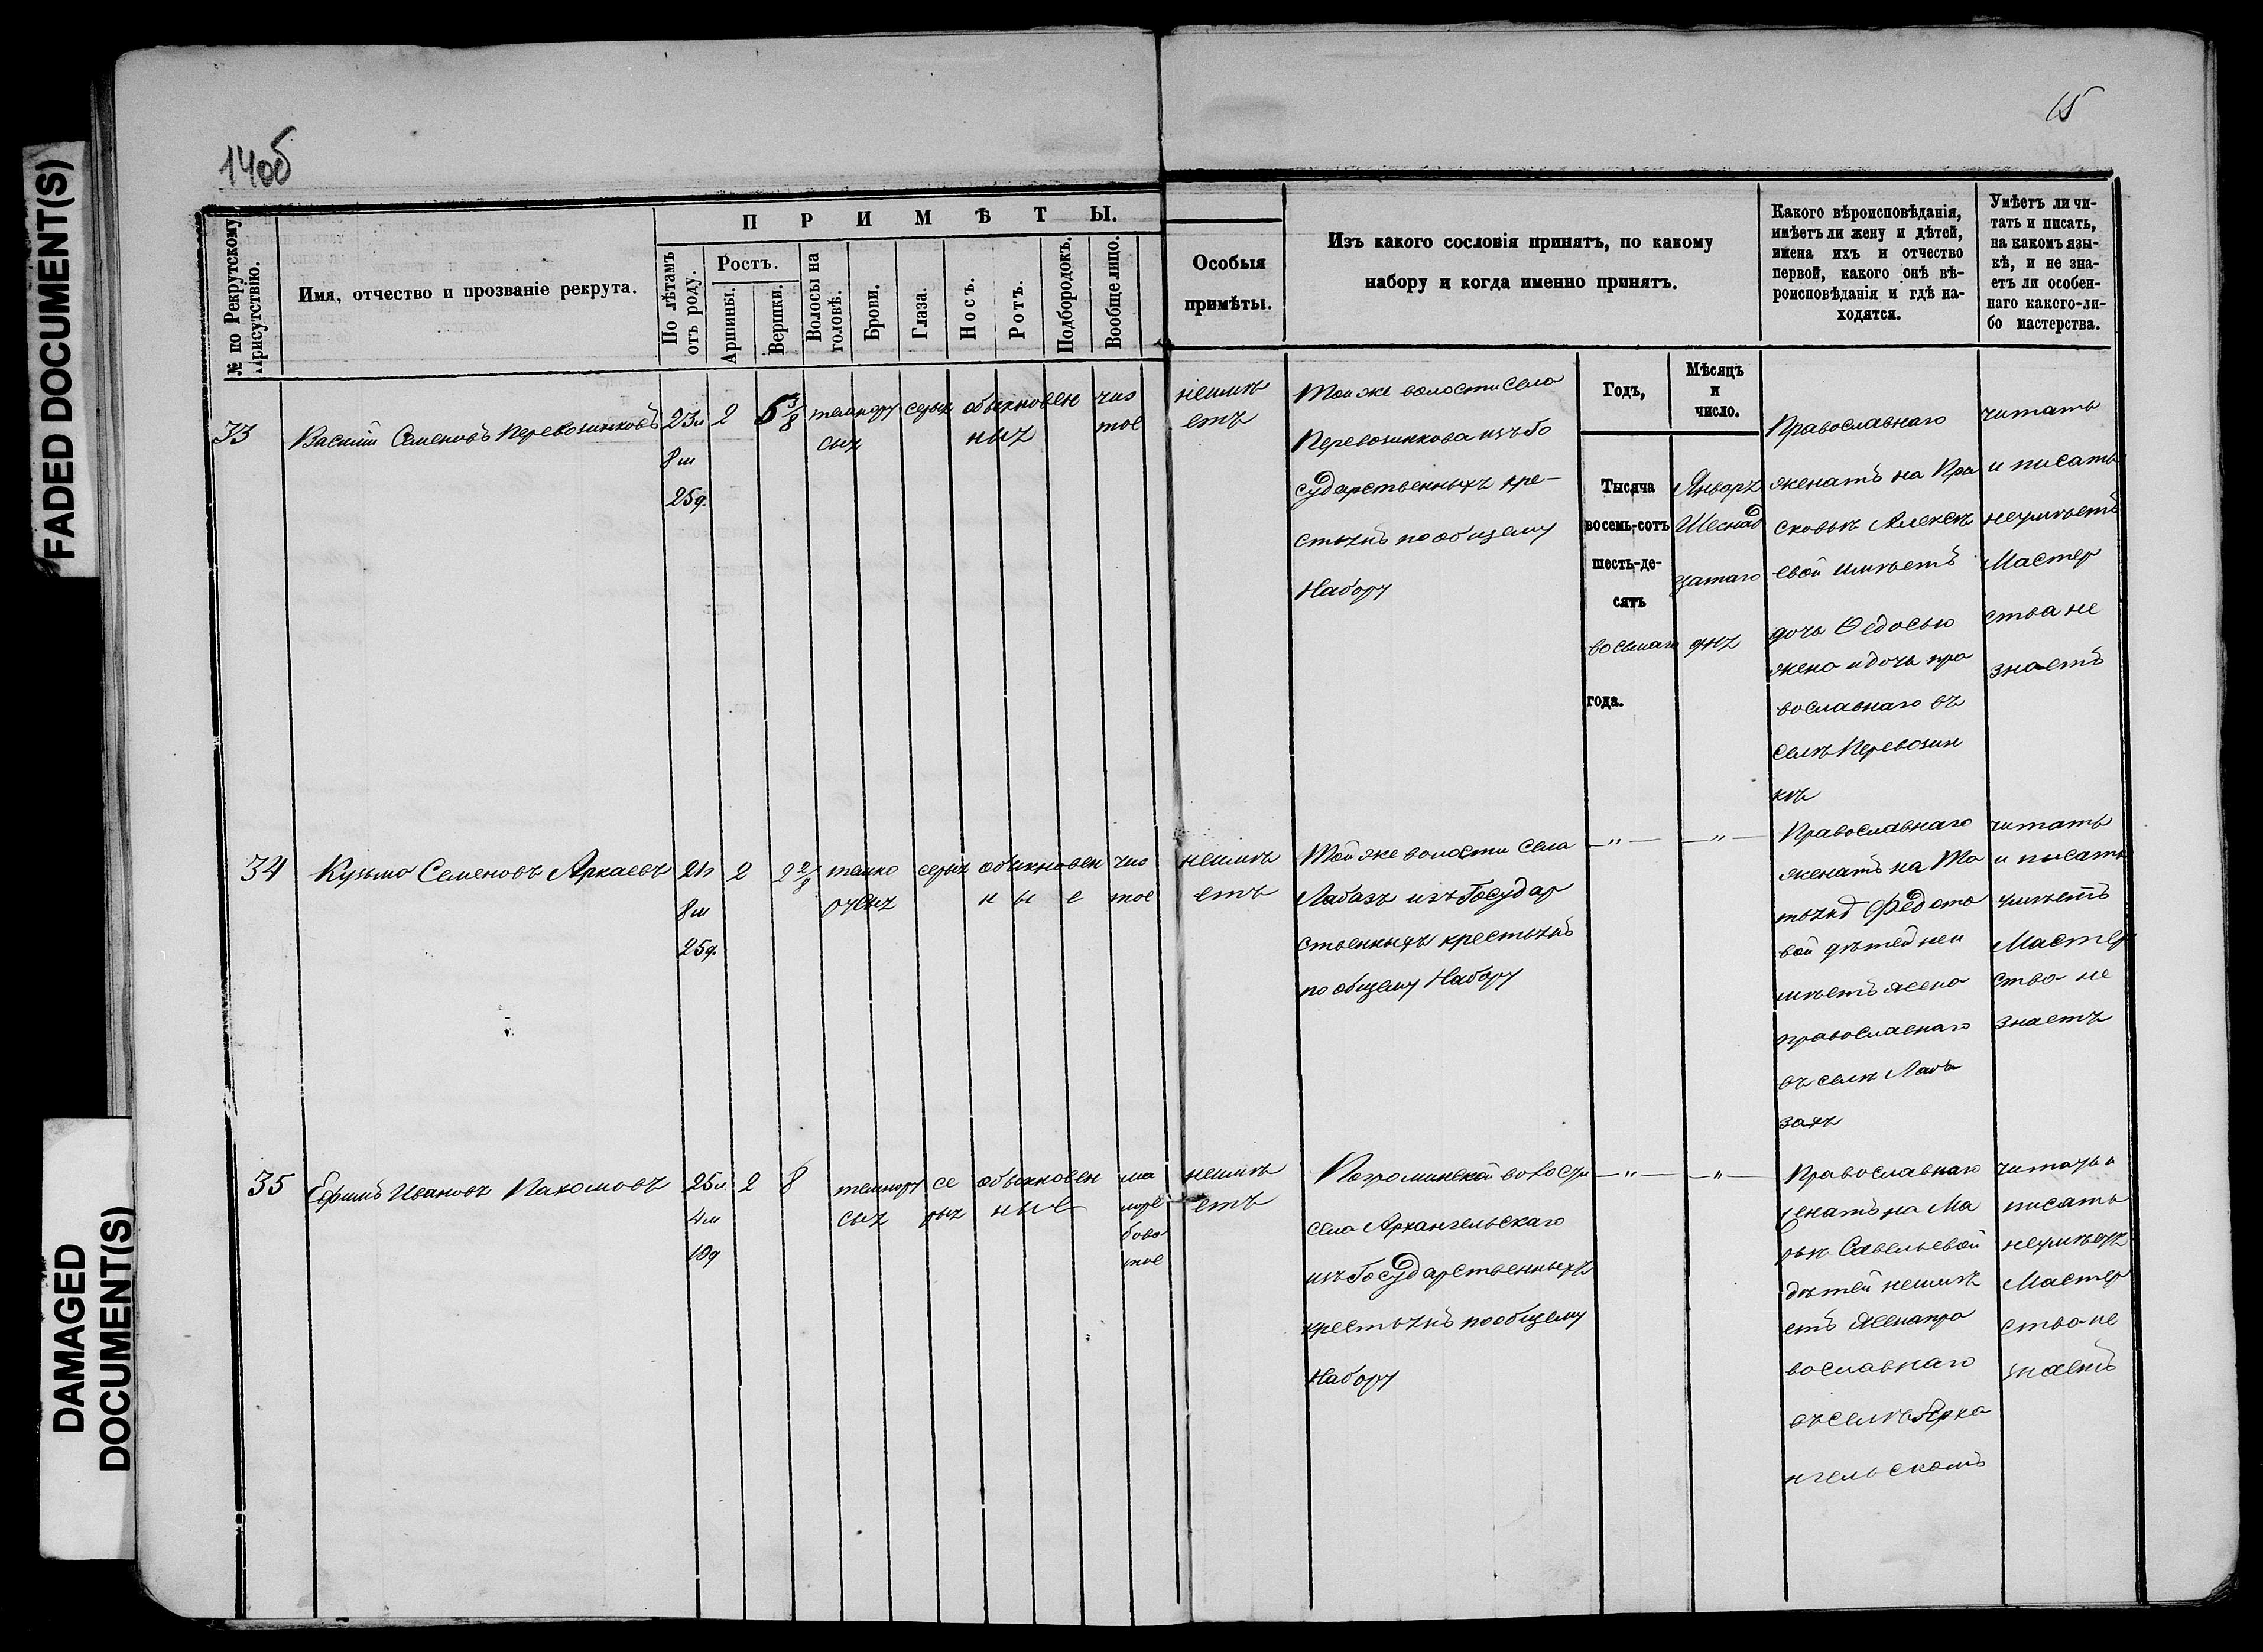 FADED DOCUMENT(S)
DAMAGED
DOCUMENT(S)
14об
15
№ по Рекрутскому
Присутствію.
Имя, отчество и прозваніе рекрута.
ПРИМѢТЫ.
По лѣтамъ
отъ роду.
Ростъ.
Аршины.
Вершки.
Волосы на
головѣ.
Брови.
Глаза.
Носъ.
Ротъ.
Подбородокъ.
Вообще лицо.
Особыя
примѣты.
Изъ какого сословія принятъ, по какому
набору и когда именно принятъ.
Какого вѣроисповѣданія,
имѣетъ ли жену и дѣтей,
имена ихъ и отчество
первой, какого онѣ вѣ-
роисповѣданія и гдѣ на-
ходятся.
Умѣетъ ли чи-
тать и писать,
на какомъ язы-
кѣ, и не зна-
етъ ли особен-
наго какого-ли-
бо мастерства.
Годъ,
Мѣсяцъ
и
число.
33
Василій Семеновъ Перевозинковъ
23л
8м
25д.
2
5 3/8
темнору
сыя
серыя
обыкновен
ныя
чис
тое
неимѣ
етъ
Той же волости села
Перевозинкова изъ Го
сударственныхъ кре-
стьянъ по общему
Набору
Тысяча
восемь-сотъ
шесть-де-
сятъ
восьмаго
года.
Января
Шеснад
цатаго
дня
Православнаго
женатъ на Пра
сковьѣ Алексѣ
евой имѣетъ
дочь Ѳедосью
жена и дочь пра
вославнаго въ
селѣ Перевозин
кѣ
читать
и писать
неумѣетъ
Мастер
ства не
знаетъ
34
Кузьма Семеновъ Аркаевъ
21л
8м
25д.
2
2 2/8
темно
русыя
серыя
обыкновен
ные
чис
тое
неимѣ
етъ
Той же волости села
Лабазъ изъ Государ
ственныхъ крестьянъ
по общему Набору
—〃—
—〃—
Православнаго
женатъ на Ма
тьянѣ Федото
вой дѣтей неи
имѣетъ жена
православнаго
въ селѣ Лаба
захъ
читать
и писать
умѣетъ
Мастер
ства не
знаетъ
35
Ефимъ Ивановъ Пахомовъ
25л.
4м
10д
2
8
темнору
сыя
се
рыя
обыкновен
ные
неимѣ
етъ
волости
села Архангельскаго
изъ Государственныхъ
крестьянъ по общему
Набору
—〃—
—〃—
Православнаго
женатъ на Ма
рьѣ Савельевой
дѣтей неимѣ
етъ жена пра
вославнаго
въ селѣ Арха
нгельскомъ
читать и
писать
неумѣетъ
Мастер
ства не
знаетъ